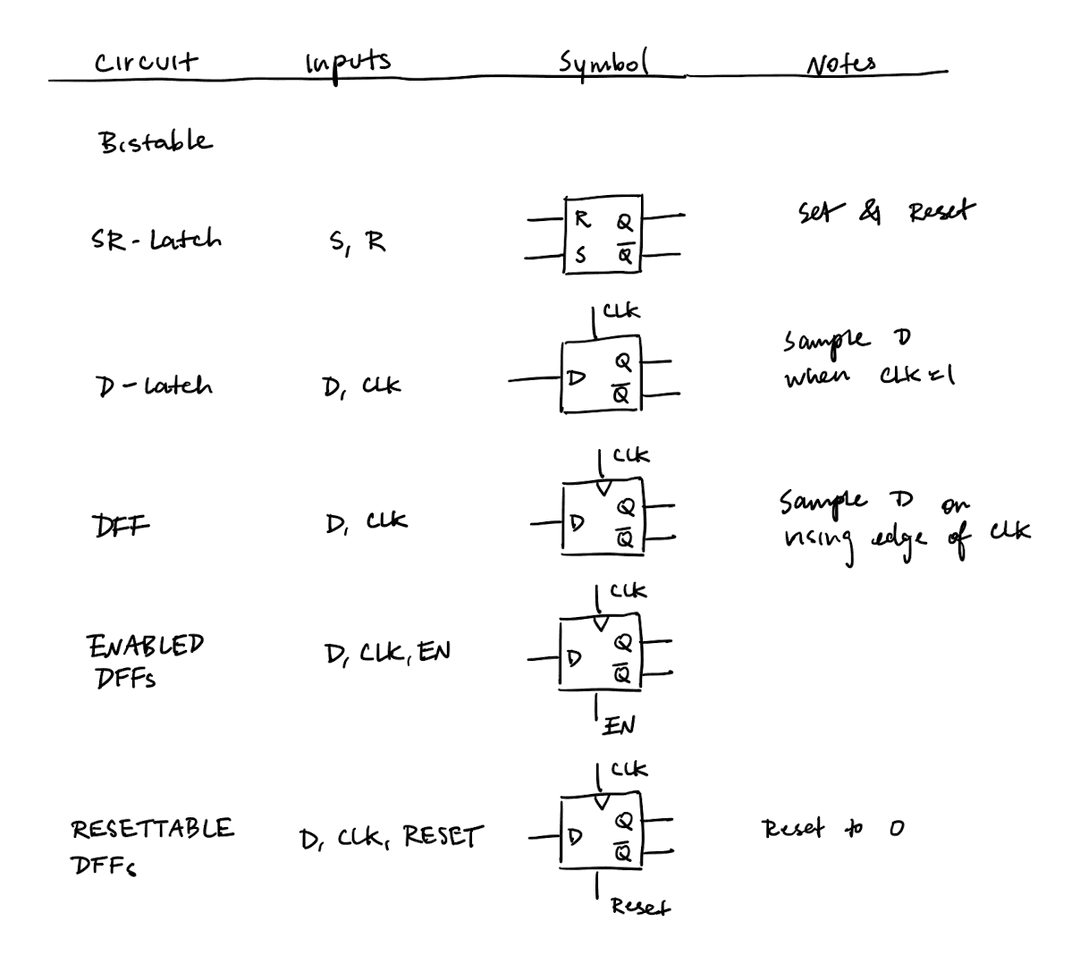 Circuit Inputs Symbol Notes
Bistable
SR-Latch S, R R Q Set & Reset
S Q̅
CLK
D-Latch D, CLK D Q Sample D
Q̅ when CLK=1
CLK
DFF D, CLK D Q Sample D on
Q̅ rising edge of CLK
CLK
ENABLED D, CLK, EN D Q
DFFs Q̅
EN
CLK
RESETTABLE D, CLK, RESET D Q Reset to 0
DFFs Q̅
Reset